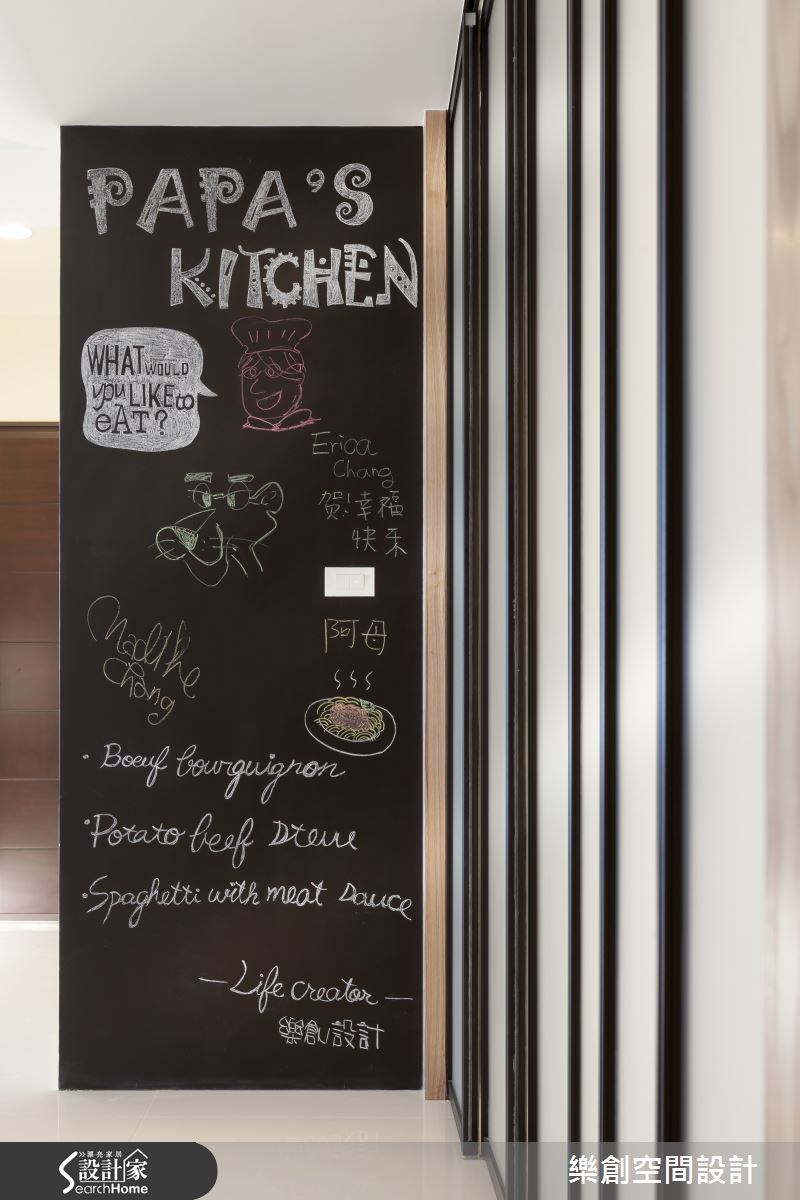 PAPA'S
KITCHEN
WHAT WOULD
you LIKE to
eAT?
Erica
Chang
賀!幸福
快禾
阿母
Chang
· Boeuf bourguignon
· Potato beef Steww
· Spaghetti with meat sauce
— Life creator —
樂創設計
漂亮家居
設計家
SearchHome
樂創空間設計